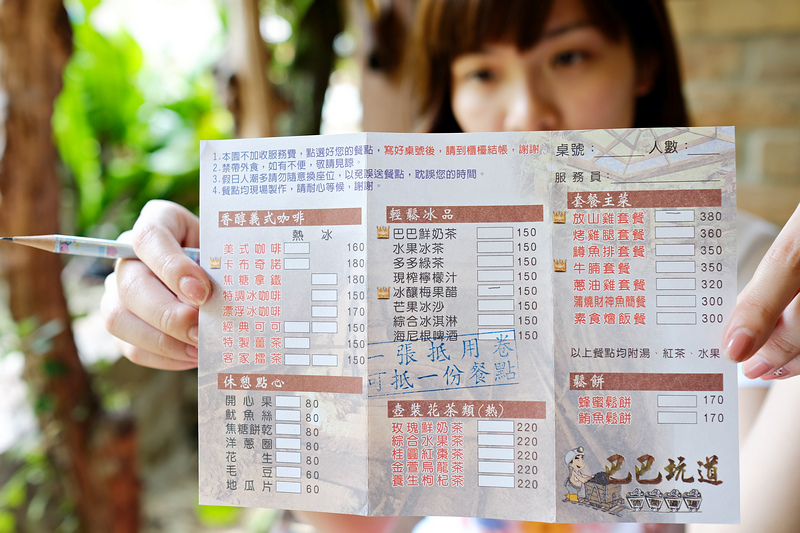 1.本園不加收服務費，點選好您的餐點，寫好桌號後，請到櫃檯結帳，謝謝。
2.禁帶外食，如有不便，敬請見諒。
3.假日人潮多請勿隨意換座位，以免誤送餐點，耽誤您的時間。
4.餐點均現場製作，請耐心等候，謝謝。
桌號： 人數：
服務員：
香醇義式咖啡
熱 冰
美式咖啡 160
卡布奇諾 180
焦糖拿鐵 180
特調冰咖啡 150
漂浮冰咖啡 170
經典可可 150
特製薑茶 150
客家擂茶 150
休憩點心
開心果 80
魷魚絲 80
焦糖餅乾 80
洋蔥圈 80
花生 80
毛豆 60
地瓜片 60
輕鬆冰品
巴巴鮮奶茶 150
水果冰茶 150
多多綠茶 150
現榨檸檬汁 150
冰釀梅果醋 一 150
芒果冰沙 150
綜合冰淇淋 150
海尼根啤酒 150
一張抵用卷
可抵一份餐點
壺裝花茶類(熱)
玫瑰鮮奶茶 220
綜合水果茶 220
桂圓紅棗茶 220
金萱烏龍茶 220
養生枸杞茶 220
套餐主菜
放山雞套餐 一 380
烤雞腿套餐 360
鱒魚排套餐 350
牛腩套餐 350
蔥油雞套餐 320
蒲燒財神魚簡餐 300
素食燴飯餐 300
以上餐點均附湯、紅茶、水果
鬆餅
蜂蜜鬆餅 170
鮪魚鬆餅 170
巴巴坑道